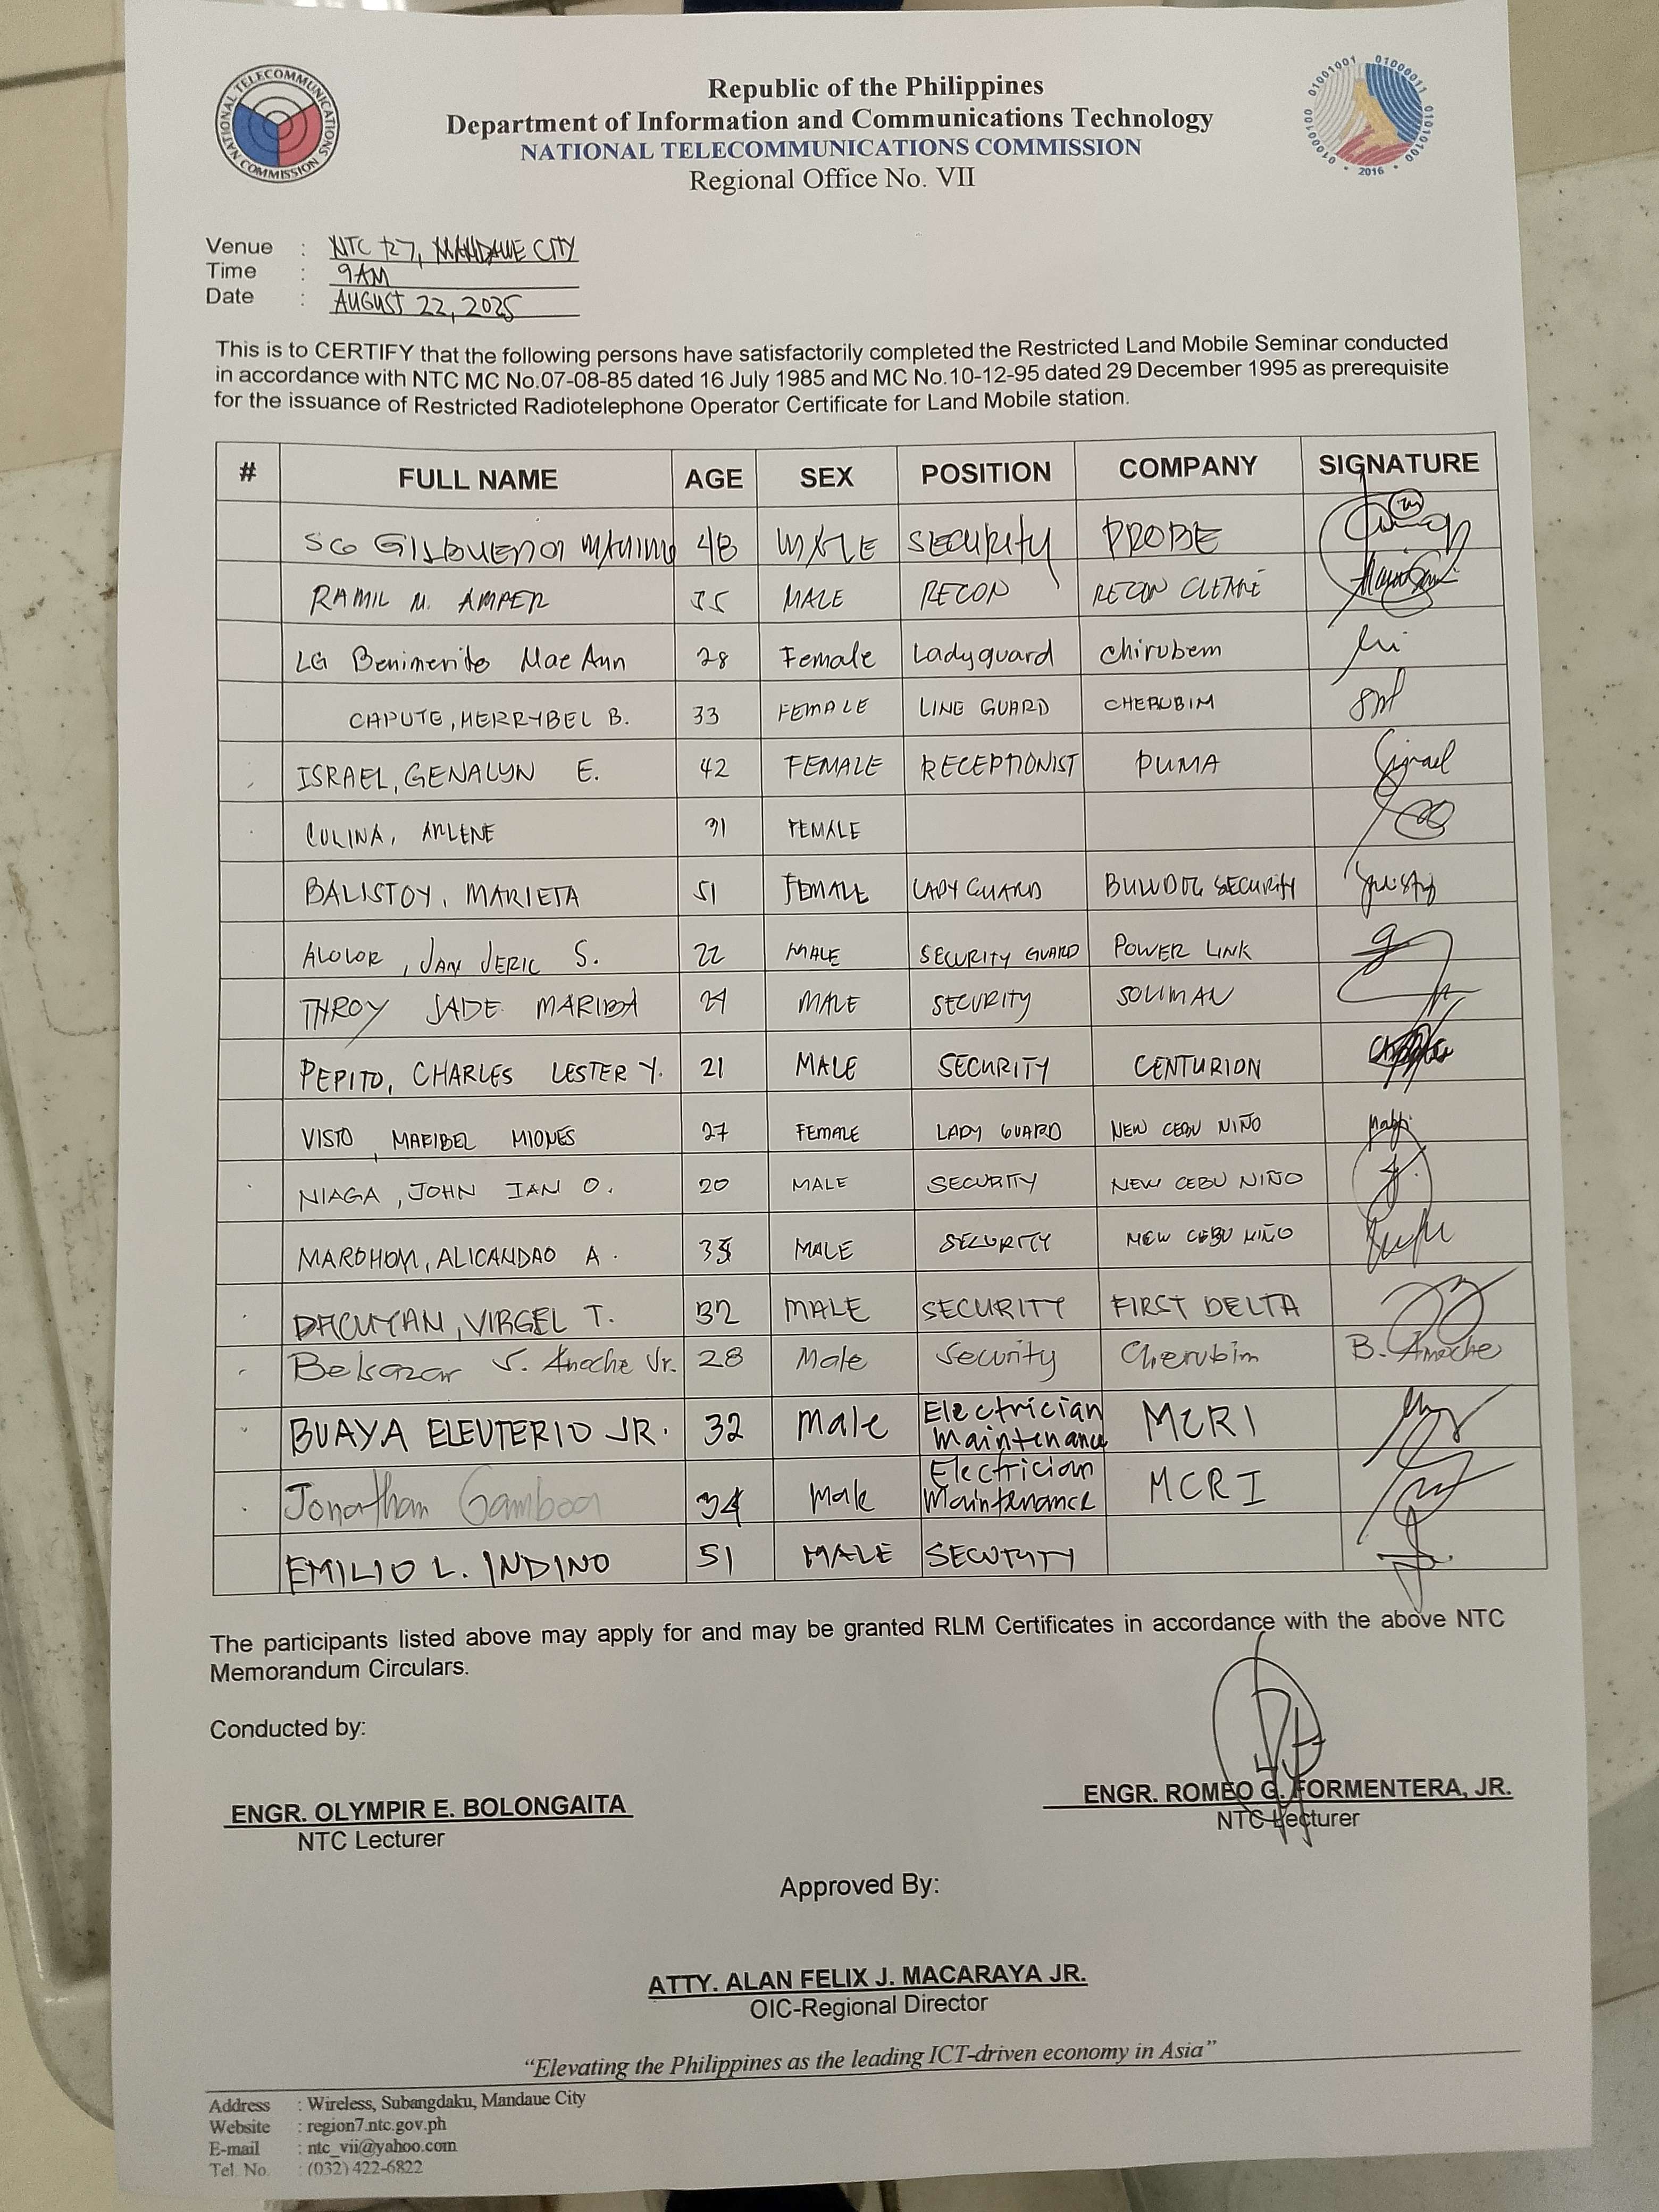 NATIONAL TELECOMMUNICATIONS COMMISSION
Republic of the Philippines
Department of Information and Communications Technology
NATIONAL TELECOMMUNICATIONS COMMISSION
Regional Office No. VII
01000100 01001001 01000011 01010100
2016
Venue : NTC R7, MANDAUE CITY
Time : 9AM
Date : AUGUST 22, 2025
This is to CERTIFY that the following persons have satisfactorily completed the Restricted Land Mobile Seminar conducted
in accordance with NTC MC No.07-08-85 dated 16 July 1985 and MC No.10-12-95 dated 29 December 1995 as prerequisite
for the issuance of Restricted Radiotelephone Operator Certificate for Land Mobile station.
# FULL NAME AGE SEX POSITION COMPANY SIGNATURE
SG 48 MALE SECURITY PROBE
RAMIL M. AMPER 35 MALE RECON RECON
LG Benimerito Mae Ann 28 Female Ladyguard Chirubem
CAPUTE, MERRYBEL B. 33 FEMALE LINE GUARD CHERUBIM
ISRAEL, GENALYN E. 42 FEMALE RECEPTIONIST PUMA
CULINA, ARLENE 31 FEMALE
BALISTOY, MARIETA 51 FEMALE LADY GUARD BULLDOG SECURITY
ALOLOR, JAN JERIC S. 22 MALE SECURITY GUARD POWER LINK
THROY JADE 21 MALE SECURITY SOLIMAN
PEPITO, CHARLES LESTER Y. 21 MALE SECURITY CENTURION
VISTO, MARIBEL MIONES 27 FEMALE LADY GUARD NEW CEBU NIÑO
NIAGA, JOHN IAN O. 20 MALE SECURITY NEW CEBU NIÑO
MAROHOM, ALICANDAO A. MALE SECURITY NEW CEBU NIÑO
DACUYAN, VIRGEL T. 32 MALE SECURITY FIRST DELTA
Belsazar S. Anoche Jr. 28 Male Security Cherubim B. Anoche
BUAYA ELEUTERIO JR. 32 Male Electrician Maintenance MCRI
Jonathan Gamboa 34 Male Electrician Maintenance MCRI
EMILIO L. INDINO 51 MALE SECURITY
The participants listed above may apply for and may be granted RLM Certificates in accordance with the above NTC
Memorandum Circulars.
Conducted by:
ENGR. OLYMPIR E. BOLONGAITA
NTC Lecturer
ENGR. ROMEO G. FORMENTERA, JR.
NTC Lecturer
Approved By:
ATTY. ALAN FELIX J. MACARAYA JR.
OIC-Regional Director
“Elevating the Philippines as the leading ICT-driven economy in Asia”
Address : Wireless, Subangdaku, Mandaue City
Website : region7.ntc.gov.ph
E-mail : ntc_vii@yahoo.com
Tel. No. : (032) 422-6822